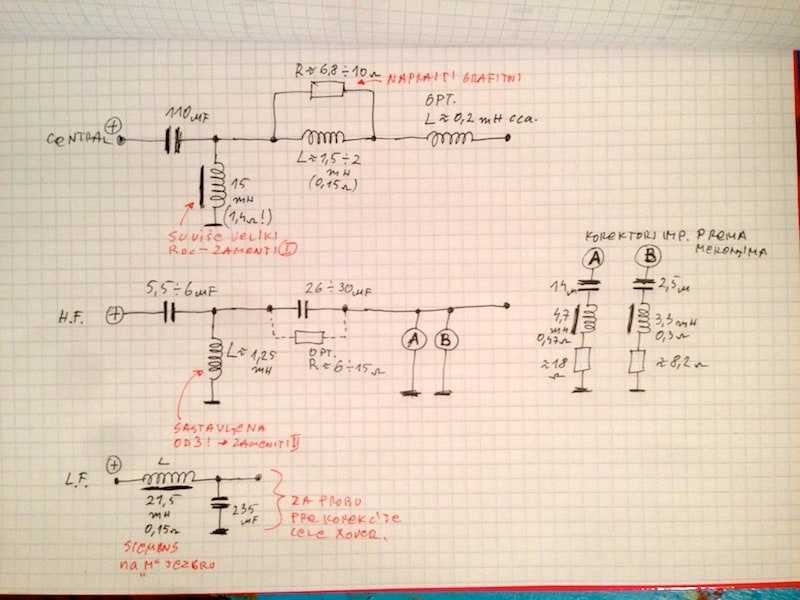 R ≈ 6,8 ÷ 10 Ω
NAPRAITI GRAFITNI
110 MF
OPT.
L ≈ 0,2 mH cca.
CENTRAL +
L ≈ 1,5 ÷ 2
mH
(0,15Ω)
15
mH
(1,4Ω!)
SUVIŠE VELIKI
RDC - ZAMENITI I
KOREKTORI IMP. PREMA
MERENJIMA
A
B
5,5 ÷ 6 MF
26 ÷ 30 MF
H.F. +
14 M
2,5 M
4,7
mH
0,47Ω
3,3 mH
0,3Ω
L ≈ 1,25
mH
OPT.
R ≈ 6 ÷ 15 Ω
A
B
≈ 18
Ω
≈ 8,2 Ω
SASTAVLJENA
OD 3! → ZAMENITI II
L.F. +
L
21,5
mH
0,15Ω
235
MF
ZA PROBU
PRE KOREKCIJE
CELE XOVER.
SIEMENS
na "M" JEZGRU